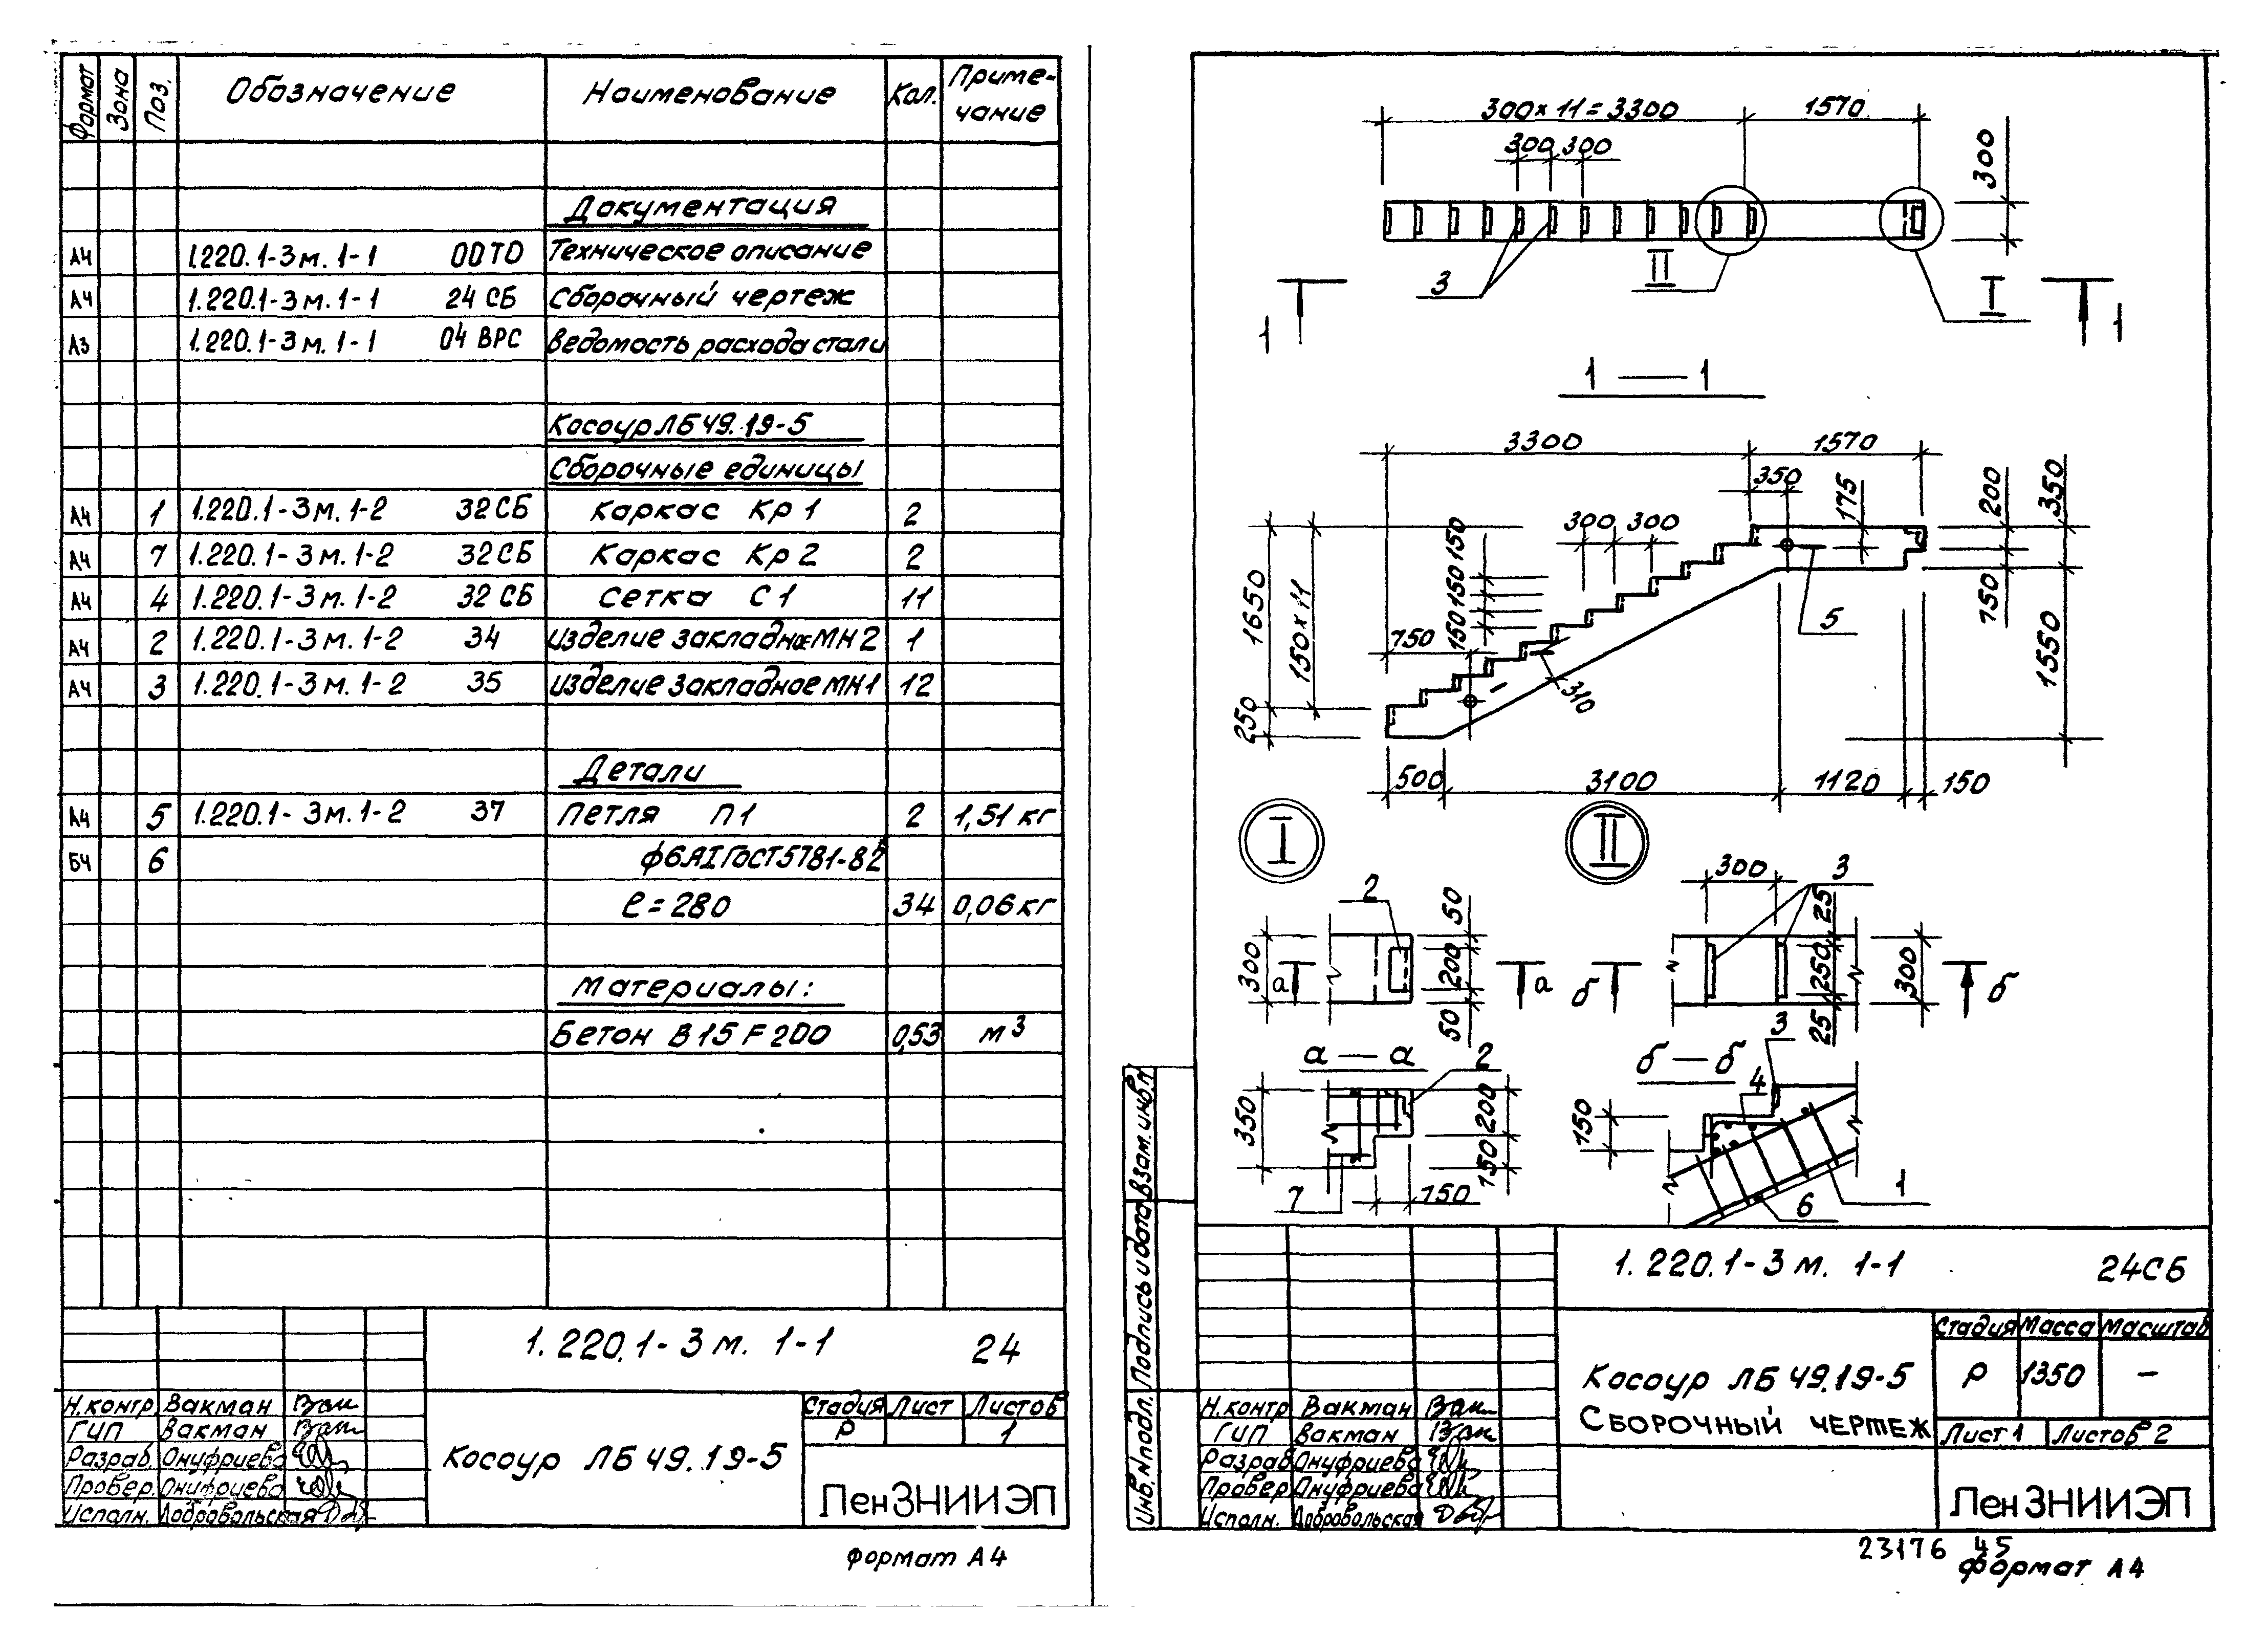 Формат Зона Поз. Обозначение Наименование Кол. Примечание
Документация
А4 1.220.1-3м.1-1 00ТО Техническое описание
А4 1.220.1-3м.1-1 24СБ Сборочный чертеж
А3 1.220.1-3м.1-1 04 ВРС Ведомость расхода стали
Косоур ЛБ 49.19-5
Сборочные единицы
А4 1 1.220.1-3м.1-2 32СБ Каркас Кр1 2
А4 7 1.220.1-3м.1-2 32СБ Каркас Кр2 2
А4 4 1.220.1-3м.1-2 32 СБ Сетка С1 11
А4 2 1.220.1-3м.1-2 34 Изделие закладное МН2 1
А4 3 1.220.1-3м.1-2 35 Изделие закладное МН1 12
Детали
А4 5 1.220.1-3м.1-2 37 Петля П1 2 1,51 кг
БЧ 6 ф6АI ГОСТ 5781-82
ℓ=280 34 0,06 кг
Материалы:
Бетон В15 F200 0,53 м3
1.220.1-3м. 1-1 24
Н.контр. Вакман
ГИП Вакман
Разраб. Онуфриева
Провер. Онуфриева
Исполн. Добровольская
Косоур ЛБ 49.19-5
Стадия Лист Листов
Р 1
ЛенЗНИИЭП
Формат А4
300×11=3300 1570
300 300
300
3
II
I
1 1
1 — 1
3300 1570
350
175
200
350
300 300
150 150 150 150
1650
150×11
750
5
150
1550
310
250
500 3100 1120 150
I II
2
50
300
200
50
а а
300 3
25
250
25
300
б б
а — а
2
350
200
150
7
150
б — б
3
4
150
1
6
Взам. инв.№
Подпись и дата
Инв. № подл.
1.220.1-3м. 1-1 24СБ
Косоур ЛБ 49.19-5
Сборочный чертеж
Стадия Масса Масштаб
Р 1350 —
Лист 1 Листов 2
Н.контр Вакман
ГИП Вакман
Разраб Онуфриева
Провер. Онуфриева
Исполн. Добровольская
ЛенЗНИИЭП
23176 45
Формат А4